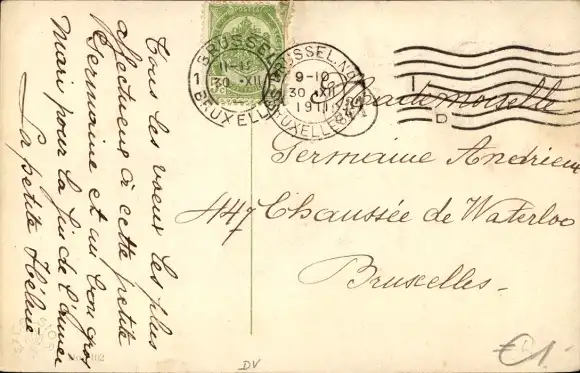 Tous les vœux les plus
affectueux à cette petite
Germaine et un bon gros
Mari pour la fin de l'année
La petite Hélène
BRUSSEL
11-12
30 XII
1
BRUXELLES
BRUSSEL
1
9-10
30 XII
1911
BRUXELLES
1
B
Mademoiselle
Germaine Andrieu
447 Chaussée de Waterloo
Bruxelles.
DV
€1